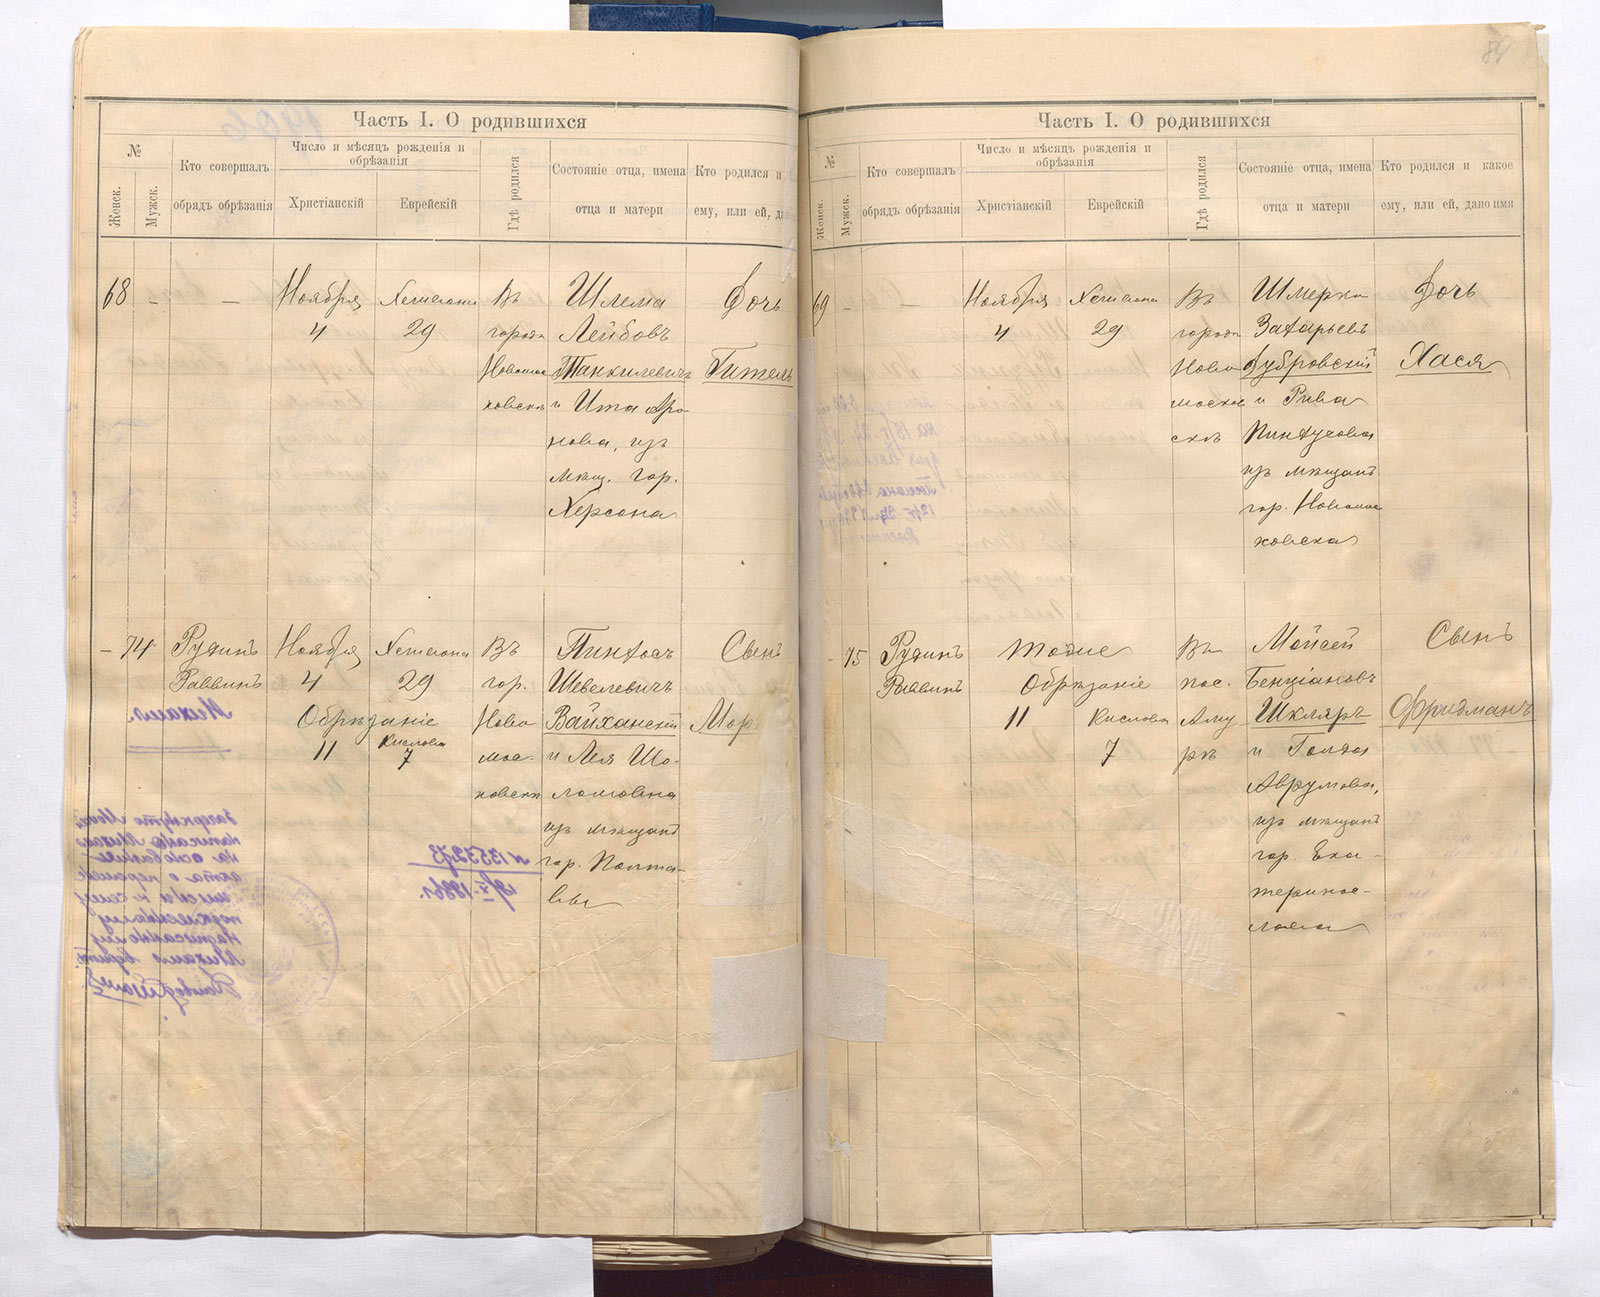 84
Часть I. О родившихся
№
Женск.
Мужск.
Кто совершалъ
обрядъ обрѣзанія
Число и мѣсяцъ рожденія и
обрѣзанія
Христіанскій
Еврейскій
Гдѣ родился
Состояніе отца, имена
отца и матери
Кто родился и
ему, или ей, да
68 - -
Ноября
4
Хешвона
29
Въ
города
Новомос
ковска
Шлема
Лейбовъ
Танкилевичъ
и Ита Аро
нова, изъ
мѣщ. гор.
Херсона
Дочь
Гитель
- 74
Рудинъ
Раввинъ
Михаил.
Ноября
4
Хешвона
29
Обрѣзаніе
11
Кислова
7
Въ
гор.
Ново
мос-
ковскѣ
Пинхосъ
Шевелевичъ
Вайханскій
и Лея Шо-
ломовна
изъ мѣщанъ
гор. Полта-
вы
Сынъ
Мор
N 1353273
1936 г.
Зачеркнуто
написано Михаил
на основании
акта о перемене
подклеенному
Надписанному
Михаил верить.
Часть I. О родившихся
№
Женск.
Мужск.
Кто совершалъ
обрядъ обрѣзанія
Число и мѣсяцъ рожденія и
обрѣзанія
Христіанскій
Еврейскій
Гдѣ родился
Состояніе отца, имена
отца и матери
Кто родился и какое
ему, или ей, дано имя
69 - -
Ноября
4
Хешвона
29
Въ
города
Ново
москов
скъ
Шмерка
Захарьевъ
Дубровскій
и Рива
Пинхусова
изъ мѣщанъ
гор. Новомос
ковска
Дочь
Хася
- 75
Рудинъ
Раввинъ
Тоже
Обрѣзаніе
11
Кислова
7
Въ
пос.
Аму
рѣ
Мойсей
Бенціановъ
Шкляръ
и Голда
Аврумова,
изъ мѣщанъ
гор. Ека-
теринос-
лава
Сынъ
Фридманъ